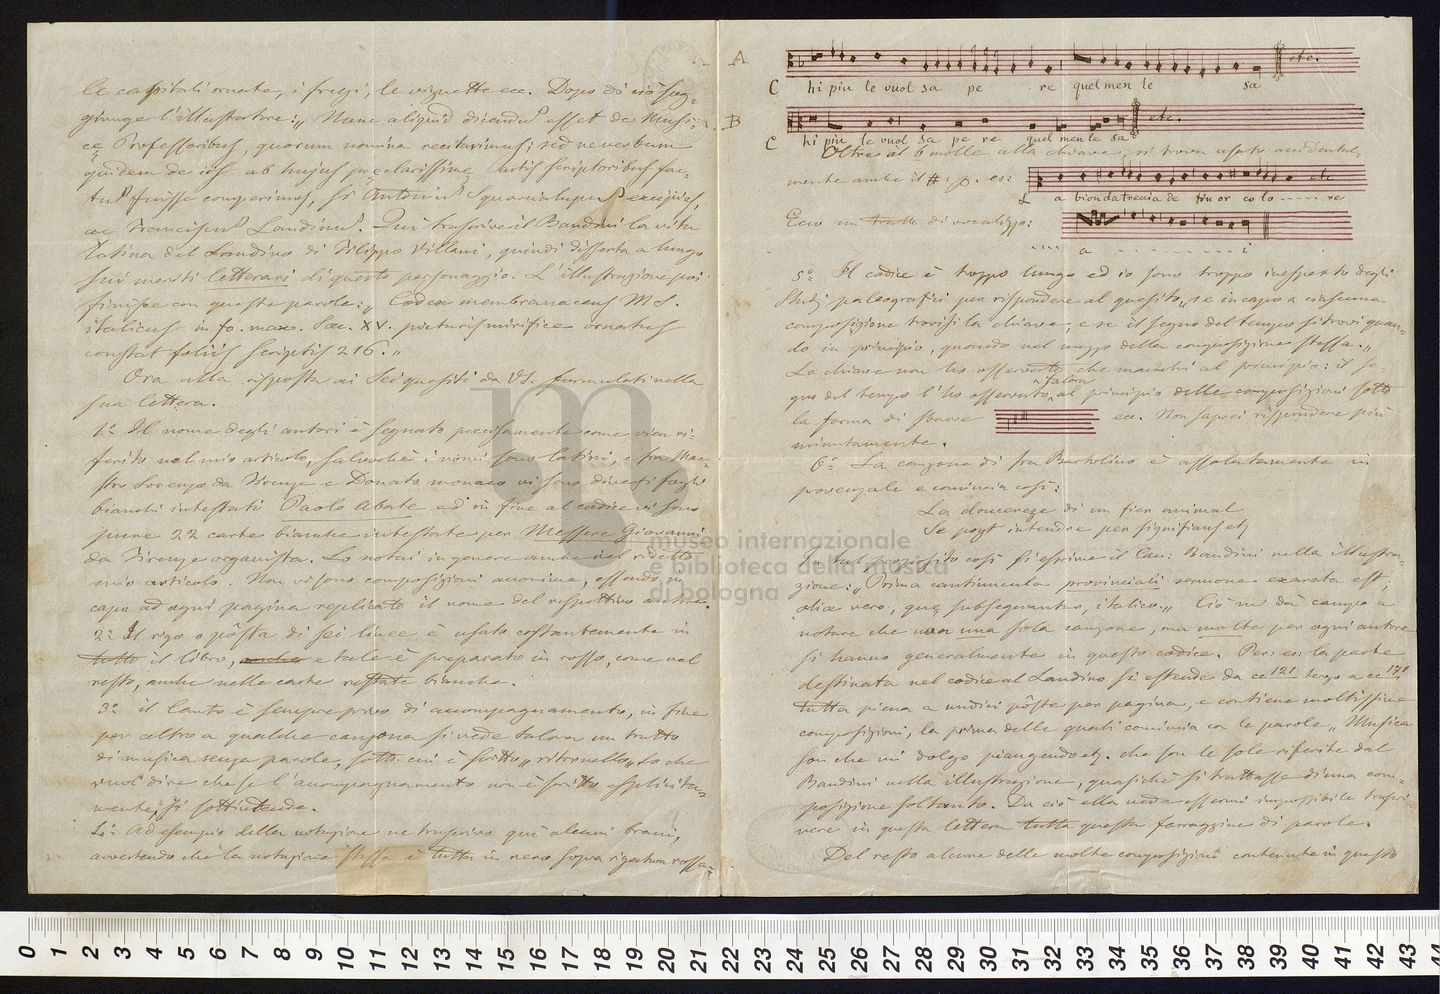 le capitali ornate, i fregi, le vignette ecc. Dopo di ciò sog-
giunge l'illustratore: „ Nunc aliquid dicendũ esset de Musi-
cę Professoribus, quorum nomina recitavimus; sed ne verbum
quidem de iis ab hujus pręclarissimę Artis scriptoribus fac-
tũ fuisse comperimus, si Antoniũ Squarcialupũ excipias,
ac Franciscũ Landinũ. Qui trascrive il Bandini la vita
latina del Landino di Filippo Villani, quindi disserta a lungo
sui meriti letterarj di questo personaggio. L'illustrazione poi
finisce con queste parole: „ Codex membranaceus MS.
italicus in fo. maxo. Saec. XV. picturis mirifice ornatus
constat foliis scriptis 216. „
Ora alla risposta ai sei quesiti da VS. formulati nella
sua lettera.
1.º Il nome degli autori è segnato precisamente come vien ri-
ferito nel mio articolo, salvochè i nomi sono latini, e fra Mae-
stro Lorenzo da Firenze e Donato monaco vi sono diversi fogli
bianchi intestati Paolo Abate ed in fine al codice vi sono
pure 22 carte bianche intestate per Messere Giovanni
da Firenze organista. Lo notai in genere anche nel suddetto
mio articolo. Non vi sono composizioni anonime, essendo in
capo ad ogni pagina replicato il nome del rispettivo autore.
2.º Il rigo o pôsta di sei linee è usato costantemente in
tutto il libro, anche e tale è preparato in rosso, come nel
resto, anche nelle carte restate bianche.
3.º il Canto è sempre privo di accompagnamento, in fine
per altro a qualche canzona si vede talora un tratto
di musica senza parole, sotto cui è scritto „ ritornello „ lo che
vuol dire che se l'accompagnamento non è scritto esplicita-
mente, si sottintende.
4.º Ad esempio della notazione ne trascrivo quì alcuni brani,
avvertendo che la notazione stessa è tutta in nero sopra rigatura rossa.
A
etc.
C hi piu le vuol sa pe re quel men le sa
B
etc.
C hi piu le vuol sa pe re quel men le sa
Oltre al b molle alla chiave, si trova usato accidental-
mente anche il #. p. es:
etc
L a bionda treccia de fin or co lo ----- re
Ecco un tratto di vocalizzo:
a i
5.º Il codice è troppo lungo ed io sono troppo inesperto degli
studj paleografici per rispondere al quesito „ se in capo a ciascuna
composizione trovisi la chiave, e se il segno del tempo si trovi quan-
do in principio, quando nel mezzo della composizione stessa. „
La chiave non ho osservato che manchi al principio: il se-
gno del tempo l'ho osservato, talora al principio delle composizioni sotto
la forma di sbarre ecc. Non saprei rispondere più
minutamente.
6.º La canzone di fra Bartolino è assolutamente in
provenzale e comincia così:
La doucereze di un fier animal
Se poyt intendre per signifiansetz
In tal proposito così si esprime il Can: Bandini nella illustra-
zione: „ Prima cantiuncula provinciali sermone exarata est;
alice vero, quę subsequuntur, italico. „ Ciò mi dà campo a
notare che non una sola canzone, ma molte per ogni autore
si hanno generalmente in questo codice. Per: es: la parte
destinata nel codice al Landino si estende da cc 121 tergo a cc 171
tutta piena a undici pôste per pagina, e contiene moltissime
composizioni, la prima delle quali comincia co le parole „ Musica
son che mi dolgo piangendo etc. che son le sole riferite dal
Bandini nella illustrazione, quasichè si trattasse d'una com-
posizione soltanto. Da ciò ella vede essermi impossibile trascri-
vere in questa lettera tutta questa farraggine di parole.
Del resto alcune delle molte composizioni contenute in questo
museo internazionale
e biblioteca della musica
di bologna
0 1 2 3 4 5 6 7 8 9 10 11 12 13 14 15 16 17 18 19 20 21 22 23 24 25 26 27 28 29 30 31 32 33 34 35 36 37 38 39 40 41 42 43 44